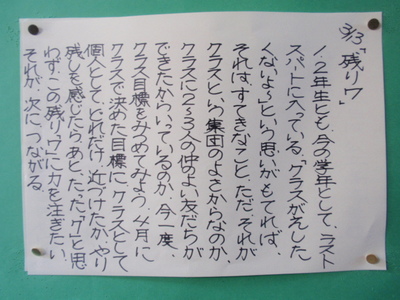 3/13「残り7」
1、2年生とも、今の学年として、ラスト
スパートに入っている。「クラスがえした
くないよ〜」という思いがもてれば、
それは、すてきなこと。ただ、それが
クラスという集団のよさからなのか、
クラスに2〜3人の仲のよい友だちが
できたからいっているのか、今一度、
クラス目標をみつめてみよう。4月に
クラスで決めた目標に、クラスとして
個人として、どれだけ近づけたか。やり
残しを感じたら、あと、たった"7"と思
わず、この"残り7"に力を注ぎたい。
それが、次に、つながる。